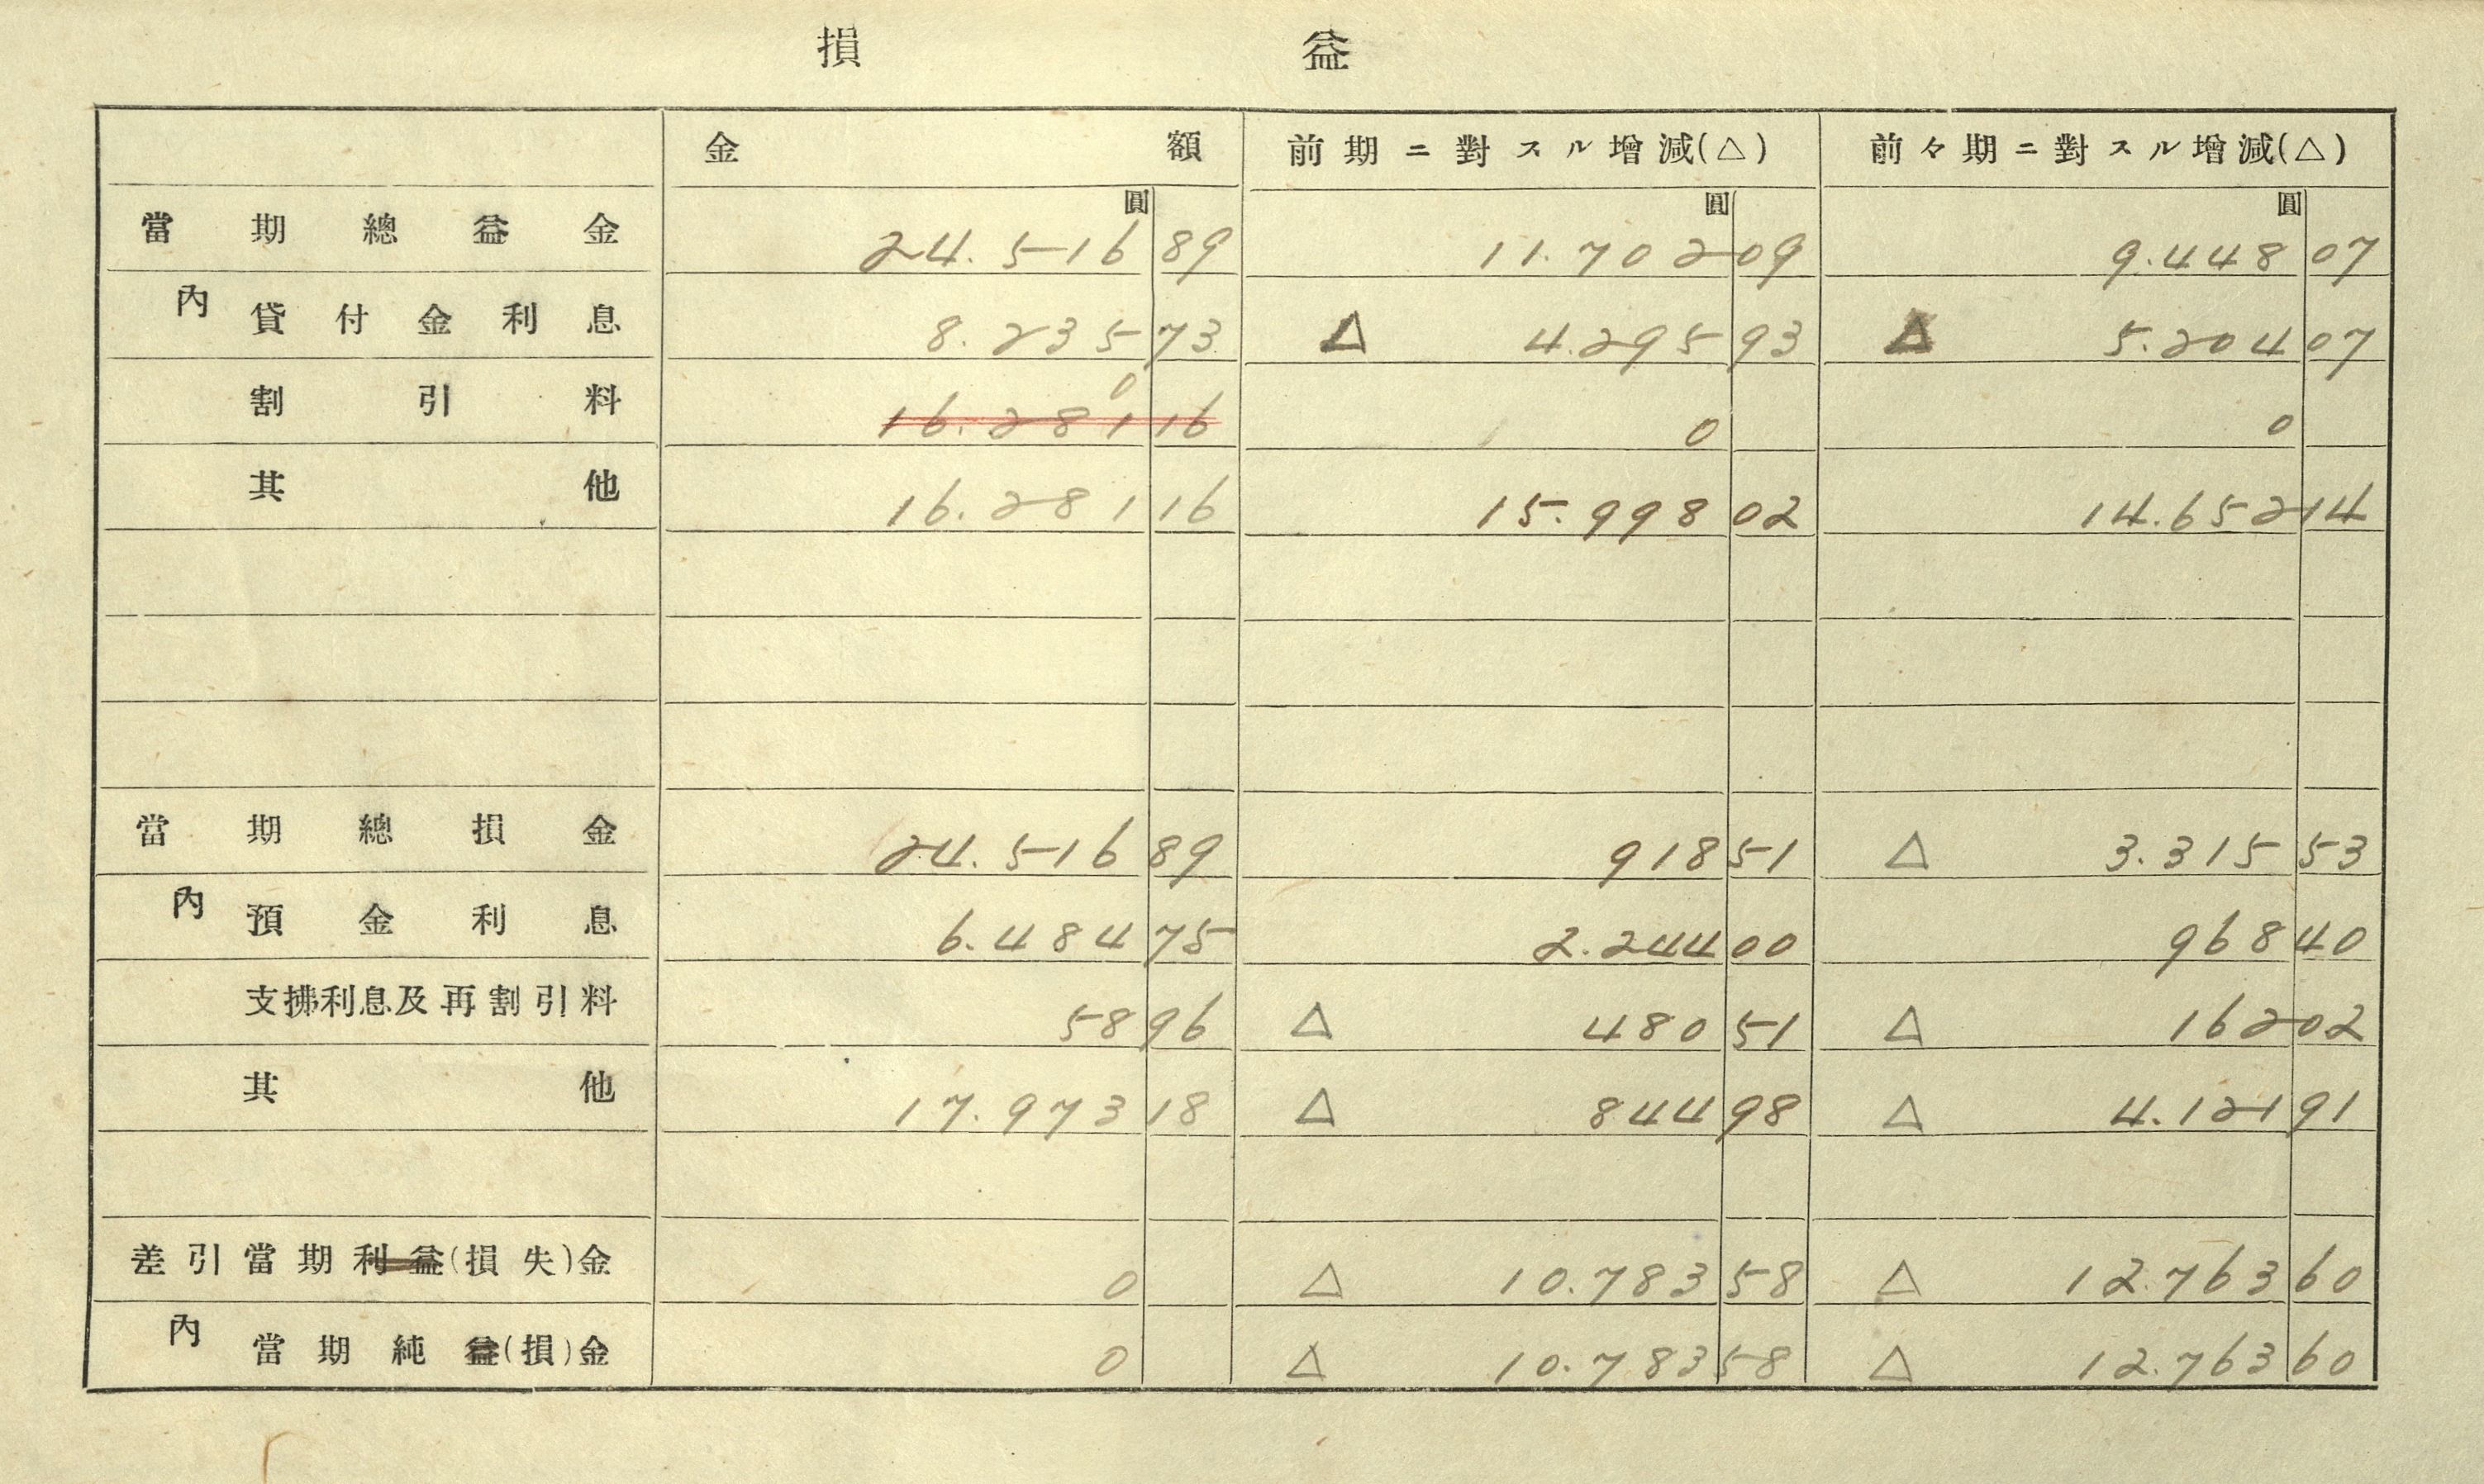 損益
金額 前期ニ對スル增減(△) 前々期ニ對スル增減(△)
圓 圓 圓
當期總益金 24.516 89 11.702 09 9.448 07
內 貸付金利息 8.235 73 △ 4.295 93 △ 5.204 07
0
割引料 16.281 16 0 0
其他 16.281 16 15.998 02 14.652 14
當期總損金 24.516 89 918 51 △ 3.315 53
內 預金利息 6.484 75 2.244 00 968 40
支拂利息及再割引料 58 96 △ 480 51 △ 162 02
其他 17.973 18 △ 844 98 △ 4.121 91
差引當期利益(損失)金 0 △ 10.783 58 △ 12.763 60
內 當期純益(損)金 0 △ 10.783 58 △ 12.763 60